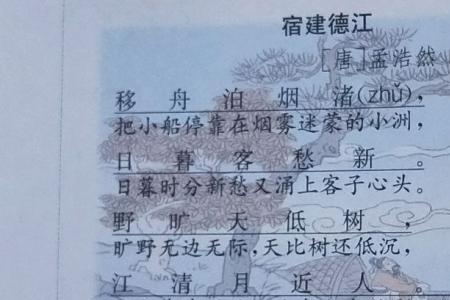 宿建德江
[唐]孟浩然
移舟泊烟渚(zhǔ),
把小船停靠在烟雾迷蒙的小洲,
日暮客愁新。
日暮时分新愁又涌上客子心头。
野旷天低树,
旷野无边无际,天比树还低沉,
江清月近人。